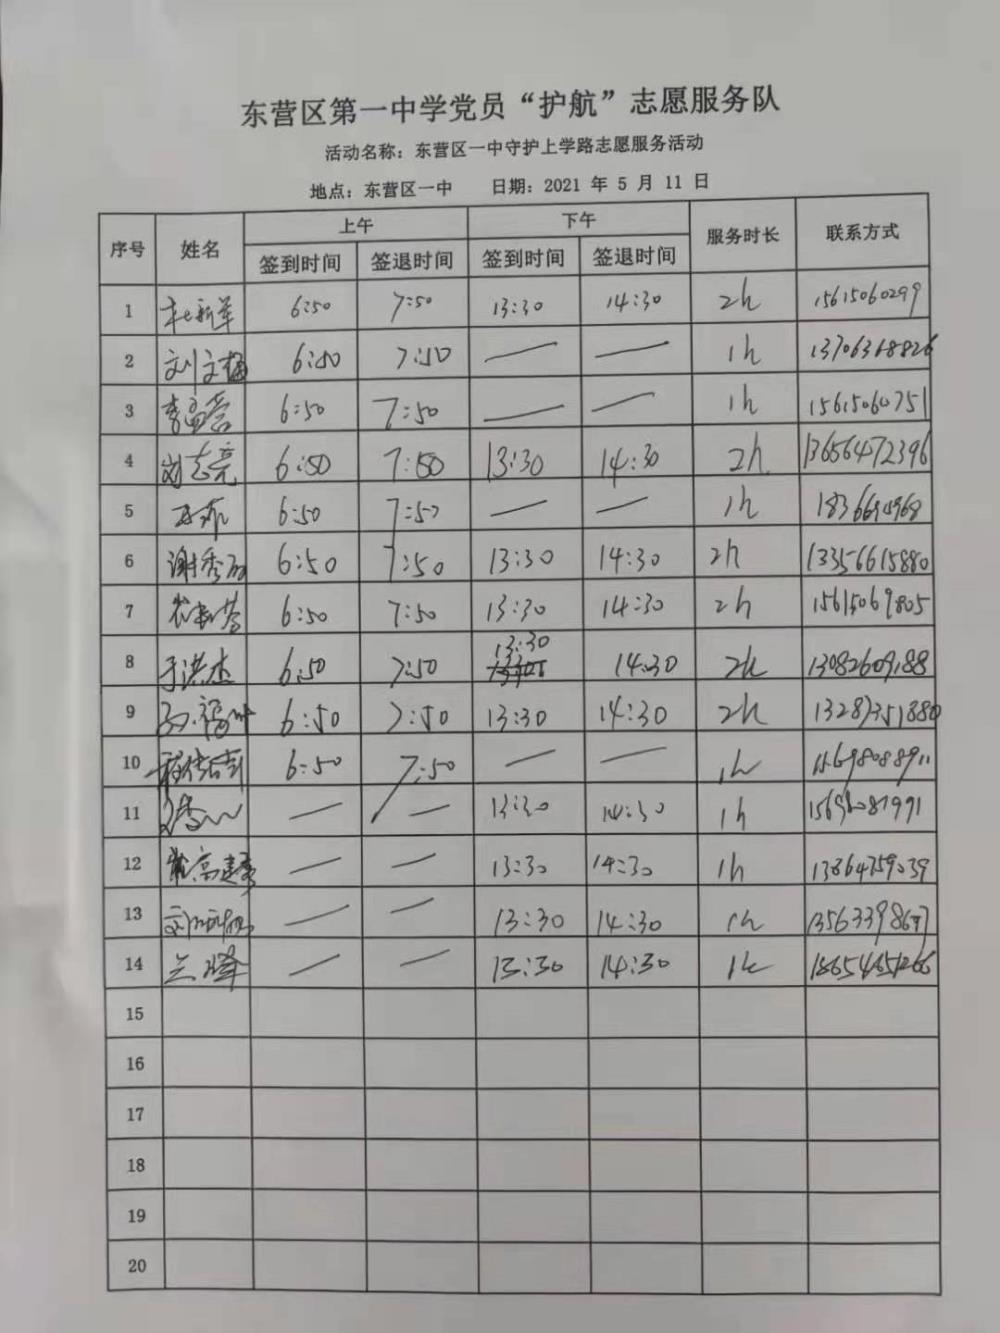 东营区第一中学党员“护航”志愿服务队
活动名称：东营区一中守护上学路志愿服务活动
地点：东营区一中 日期：2021 年 5 月 11 日
序号 姓名 上午 下午 服务时长 联系方式
签到时间 签退时间 签到时间 签退时间
1 杜新军 6:50 7:50 13:30 14:30 2h 15615060299
2 刘文梅 6:50 7:50 — — 1h 13706368826
3 6:50 7:50 — — 1h 15615060751
4 刘志亮 6:50 7:50 13:30 14:30 2h 13656472396
5 6:50 7:50 — — 1h
6 谢秀丽 6:50 7:50 13:30 14:30 2h 13356615880
7 6:50 7:50 13:30 14:30 2h 15615069805
8 于洪杰 6:50 7:50 13:30 14:30 2h 13082609188
9 6:50 7:50 13:30 14:30 2h 13287351880
10 6:50 7:50 — — 1h
11 — — 13:30 14:30 1h
12 — — 13:30 14:30 1h 13864759039
13 — — 13:30 14:30 1h
14 兰峰 — — 13:30 14:30 1h 18654651266
15
16
17
18
19
20